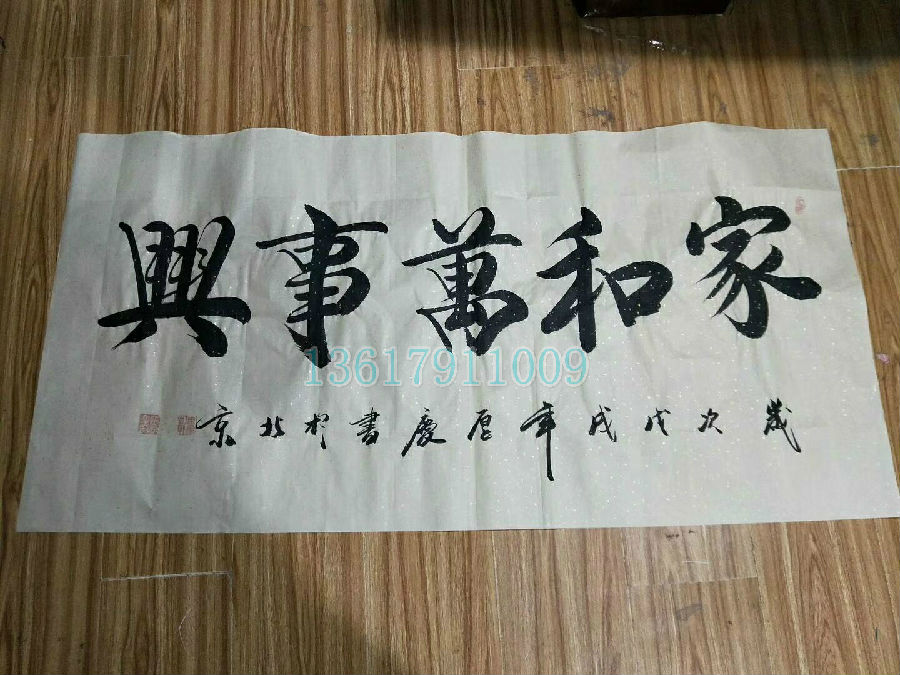 家和萬事興
歲次戊戌年厚慶書於北京
13617911009